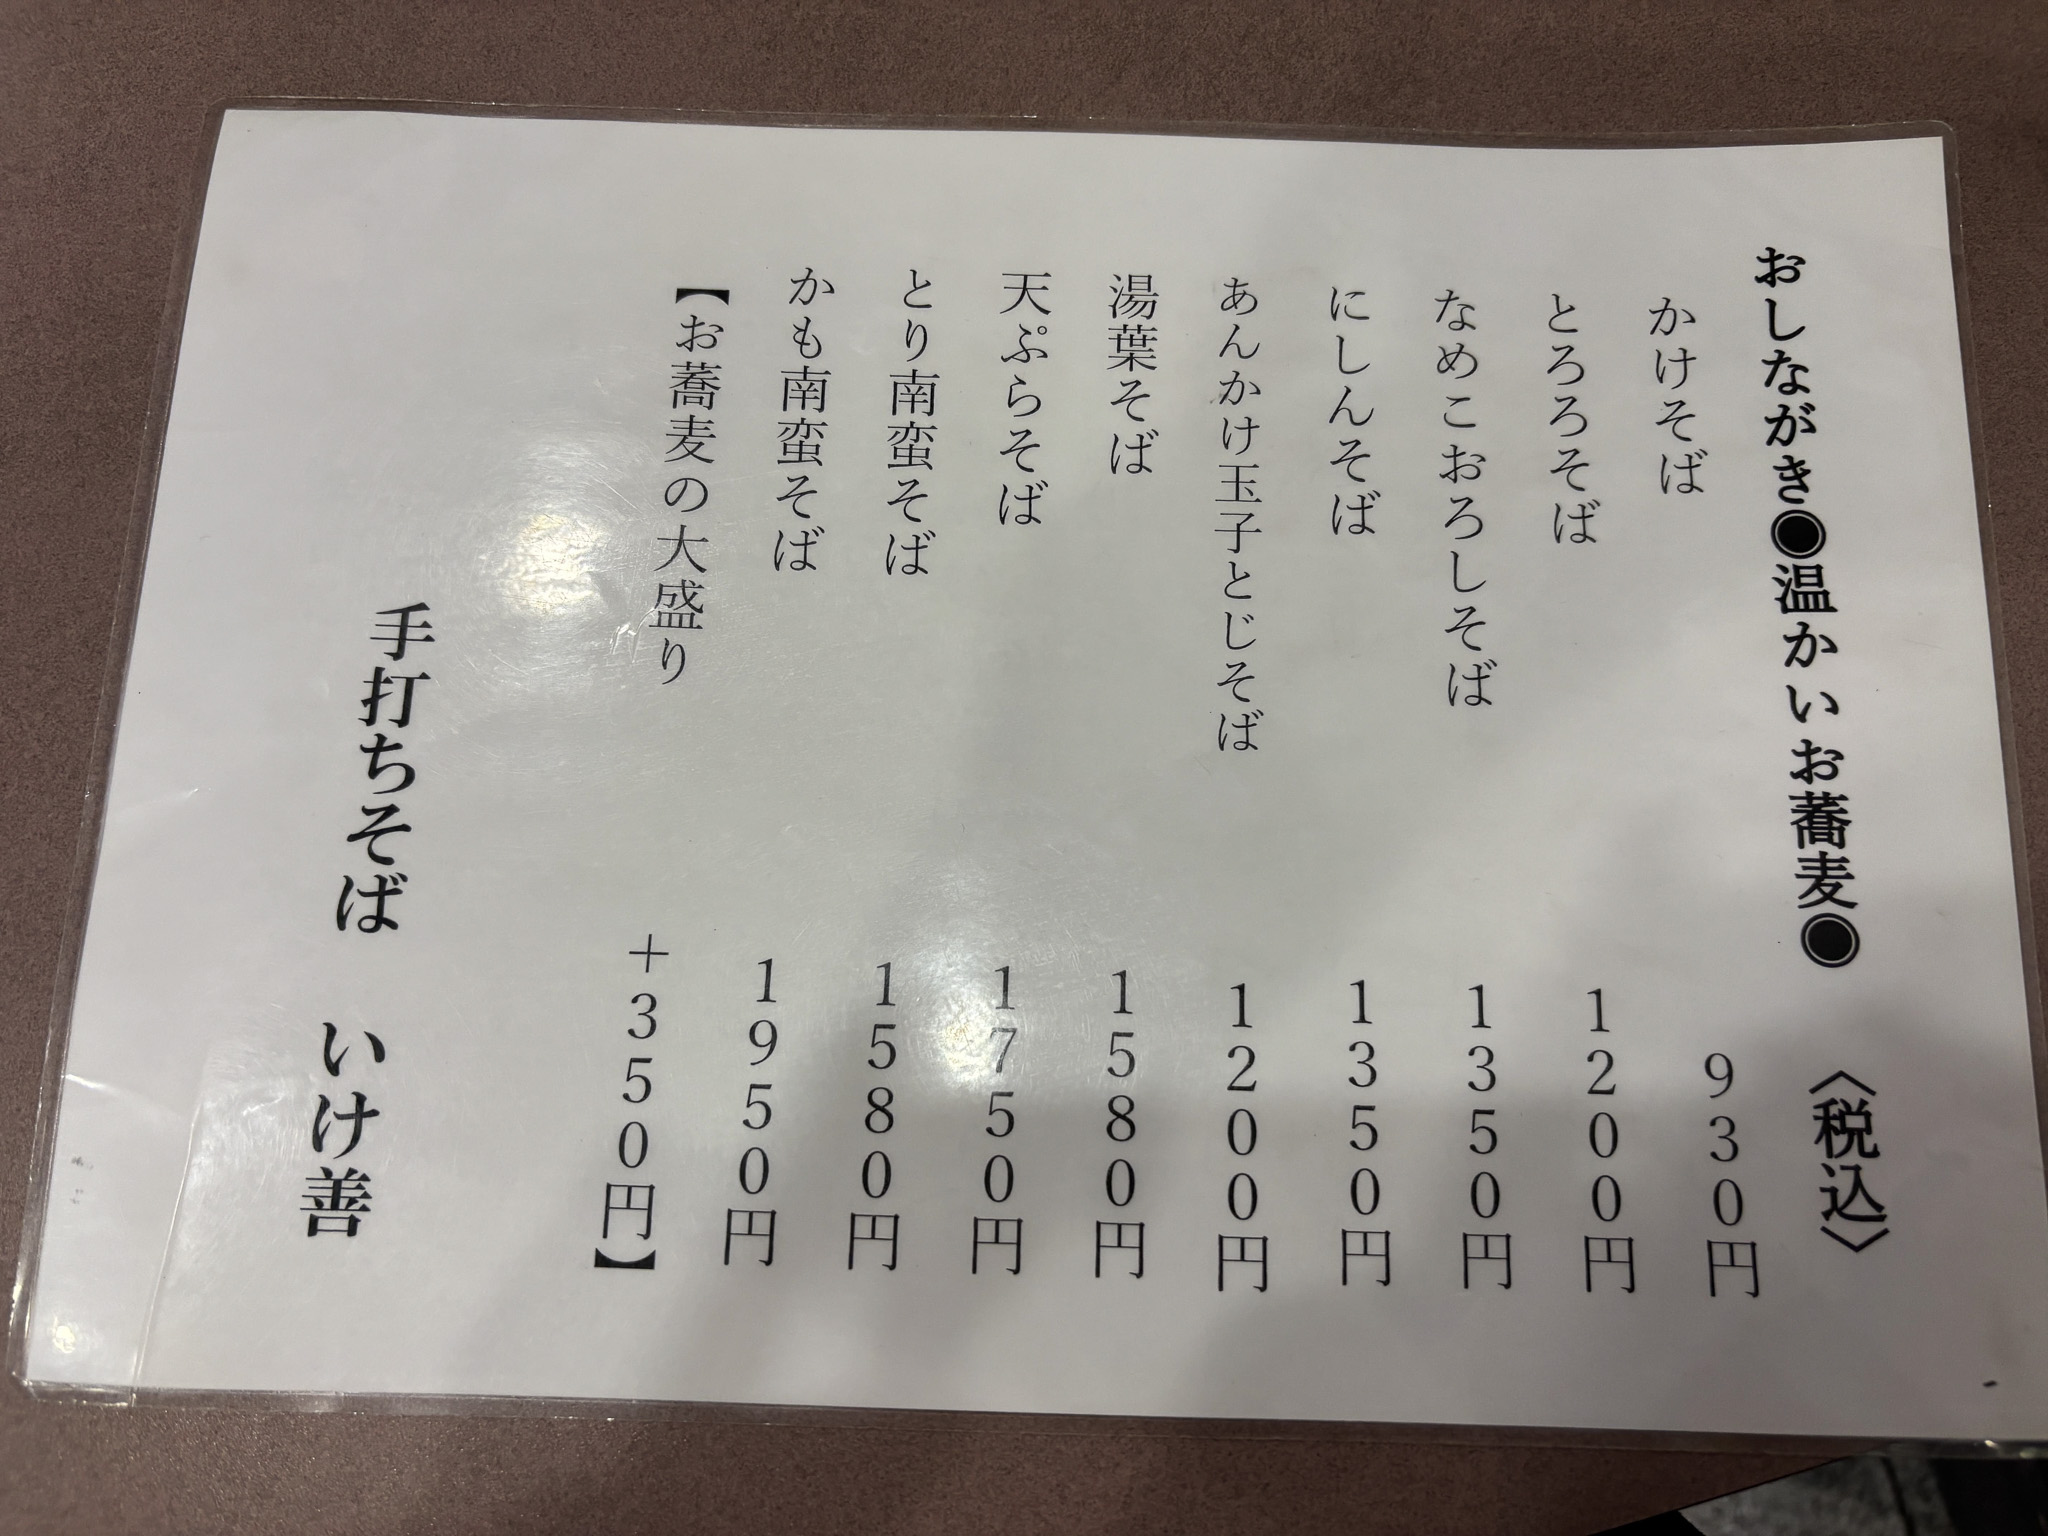 おしながき◉温かいお蕎麦◉ 〈税込〉
かけそば 930円
とろろそば 1200円
なめこおろしそば 1350円
にしんそば 1350円
あんかけ玉子とじそば 1200円
湯葉そば 1580円
天ぷらそば 1750円
とり南蛮そば 1580円
かも南蛮そば 1950円
【お蕎麦の大盛り +350円】
手打ちそば いけ善